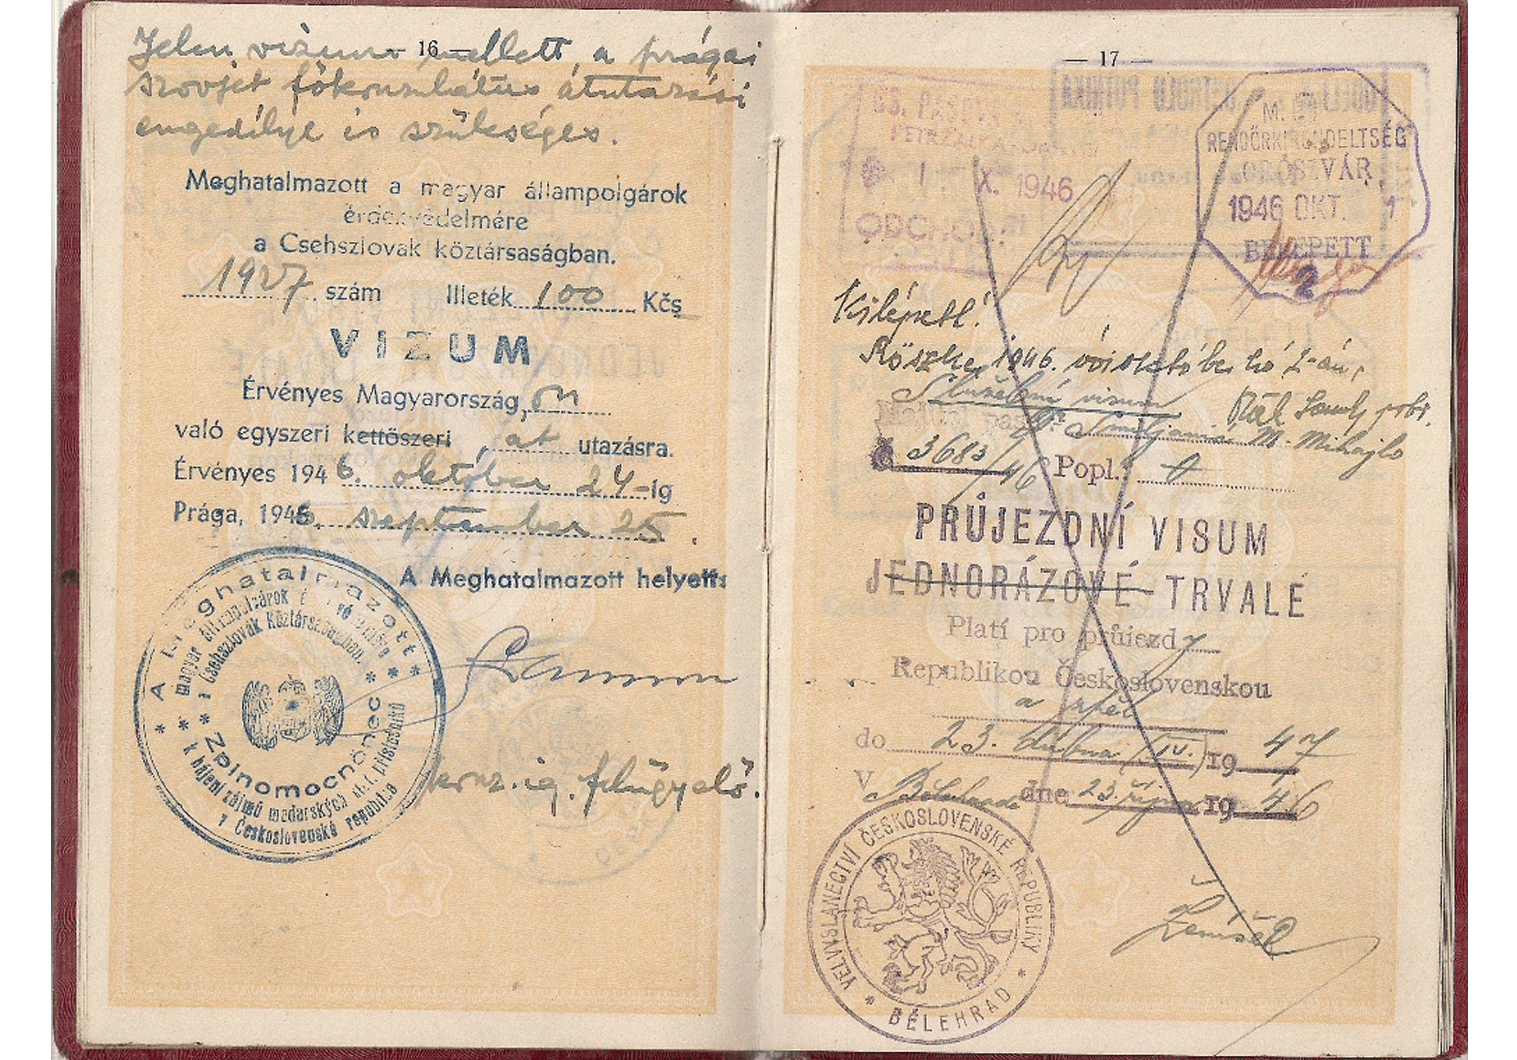 — 16 —
Jelen vizum mellett a prágai
szovjet főkonzulátus átutazási
engedélye is szükséges.
Meghatalmazott a magyar állampolgárok
érdekvédelmére
a Csehszlovák köztársaságban.
1927 szám Illeték 100 Kčs
VIZUM
Érvényes Magyarország, on
való egyszeri kettőszeri át utazásra.
Érvényes 1946. október 24-ig
Prága, 1946. szeptember 25.
A Meghatalmazott helyett:
konz. ig. felügyelő.
* A Meghatalmazott *
magyar állampolgárok érdekvédelmére
a Csehszlovák Köztársaságban.
* Zplnomocněnec *
k hájení zájmů maďarských stát. příslušníků
v Československé republice
— 17 —
1. X. 1946
ODCHOD:
M.
RENDŐRKIRENDELTSÉG
OROSZVÁR
1946 OKT. 1
BELÉPETT
2
Kilépett!
Röszke, 1946. évi október hó 2-án,
Služební visum
M. Mihajlo
3683/46 Popl.
PRŮJEZDNÍ VISUM
JEDNORÁZOVÉ - TRVALÉ
Platí pro průjezd
Republikou Československou
a zpět
do 23. dubna (IV.) 1947
V Bělehradě dne 23. října 1946
VELVYSLANECTVÍ ČESKOSLOVENSKÉ REPUBLIKY
* BĚLEHRAD *